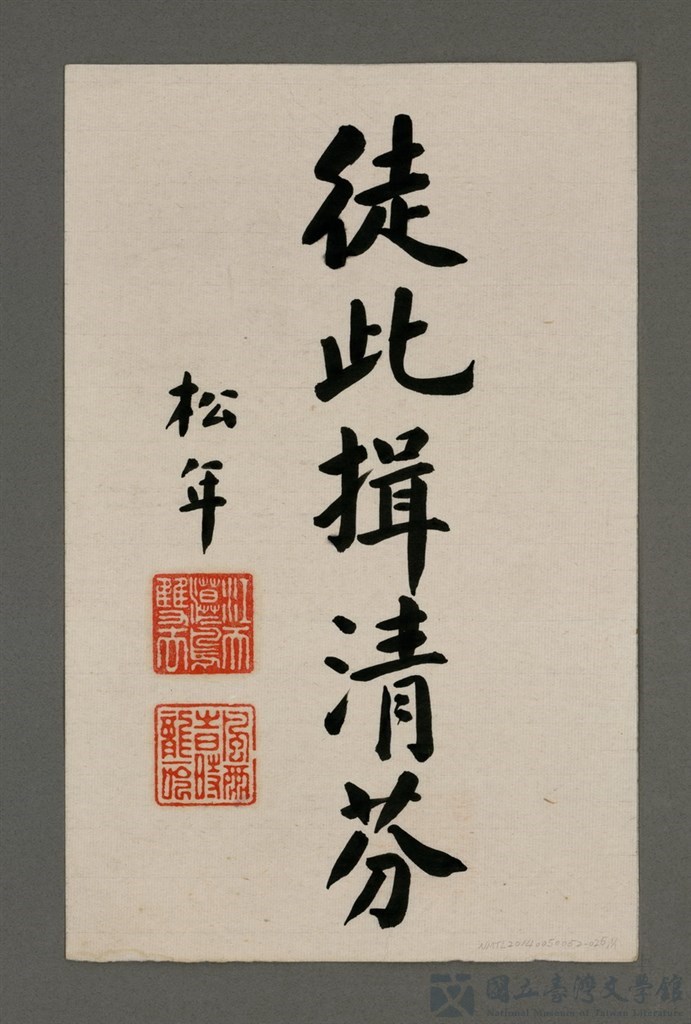 徒此揖清芬
松年
江天
漠鳥
雙去
風雨
國立臺灣文學館
National Museum of Taiwan Literature